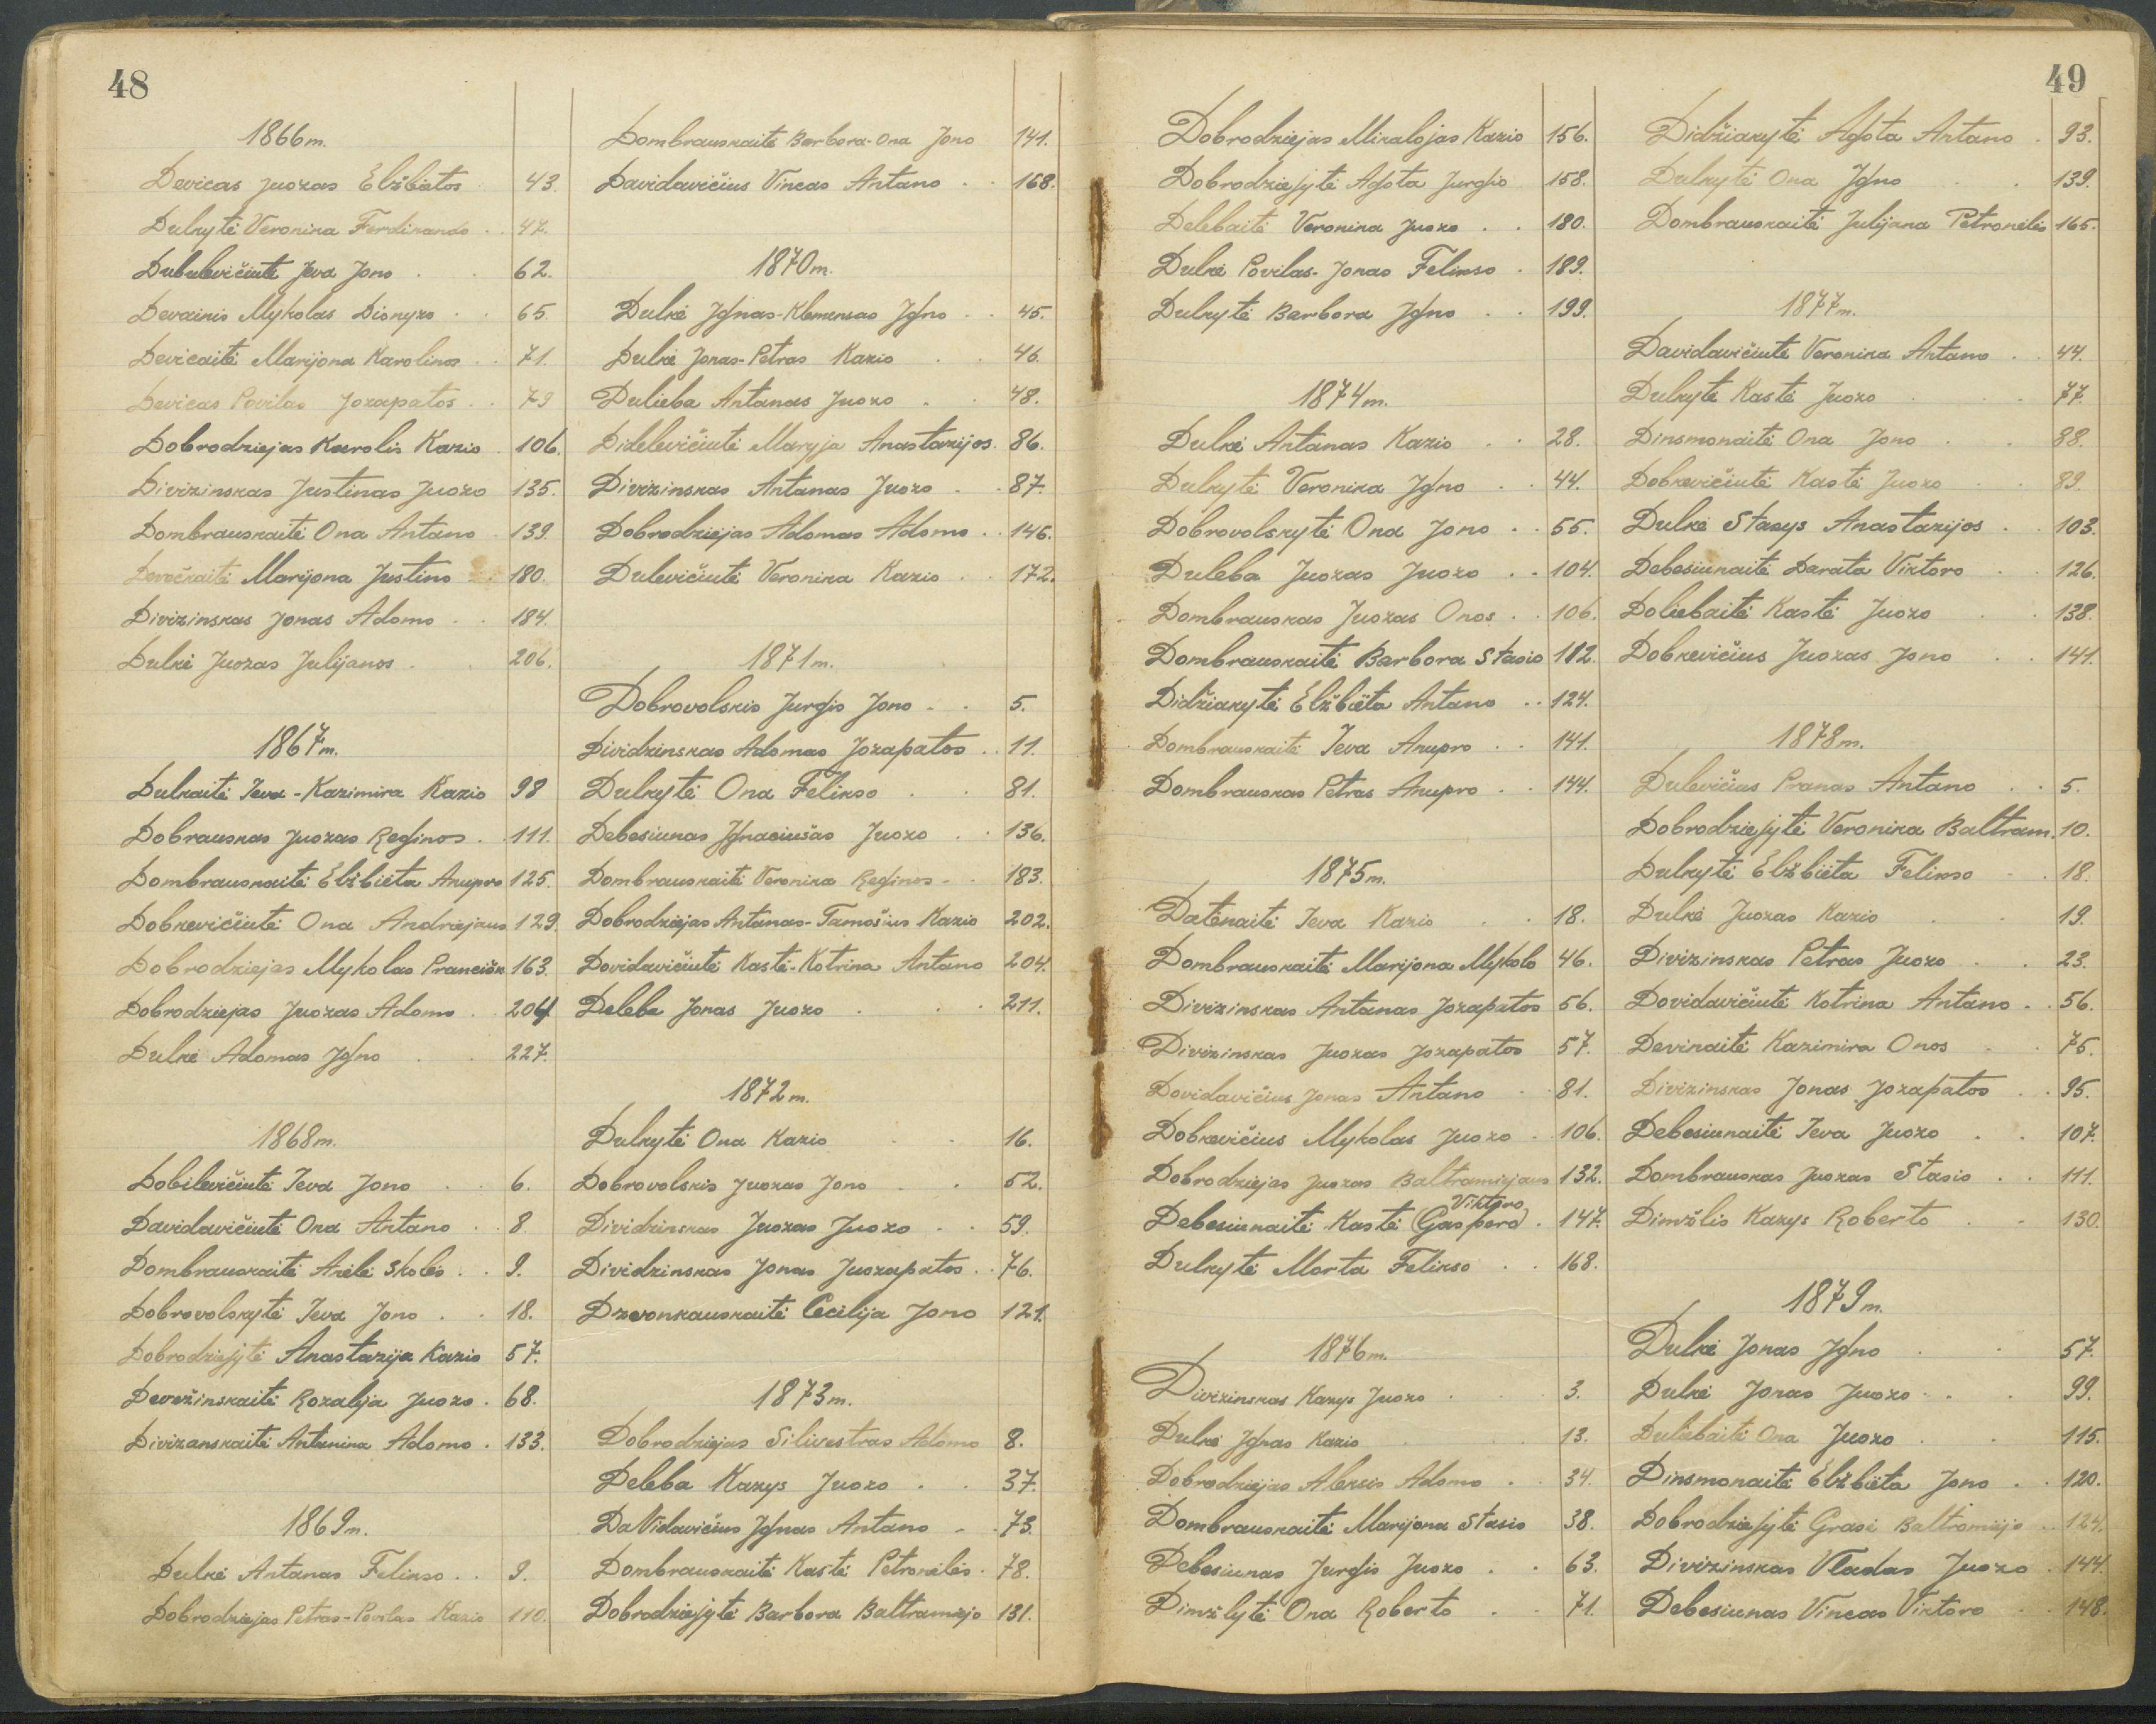 48
1866 m.
Devicas Juozas Elžbietos 43.
Dulkytė Veronika Ferdinando 47.
Dubulevičiutė Jeva Jono 62.
Devainis Mykolas Dionyzo 65.
Devicaitė Marijona Karolinos 71.
Devicas Povilas Jozapatos 79
Dobrodziejas Karolis Kazio 106.
Divizinskas Justinas Juozo 135.
Dombrauskaitė Ona Antano 139.
Marijona Justino 180.
Divizinskas Jonas Adomo 184.
Dulkė Juozas Julijanos 206.
1867 m.
Dulkaitė Ieva-Kazimira Kazio 98
Dobrauskas Juozas Reginos 111.
Dombrauskaitė Elžbieta Anupro 125.
Dobkevičiutė Ona Andriejaus 129.
Dobrodziejas Mykolas Prancišk 163.
Dobrodziejas Juozas Adomo 204
Dulkė Adomas Igno 227.
1868 m.
Dobilevičiutė Ieva Jono 6.
Davidavičiutė Ona Antano 8.
Dombrauskaitė Anėlė Skolės 9.
Dobrovolskytė Ieva Jono 18.
Dobrodziejytė Anastazija Kazio 57.
Devežinskaitė Rozalija Juozo 68.
Divizanskaitė Antanina Adomo 133.
1869 m.
Dulkė Antanas Felikso 9.
Dobrodziejas Petras-Povilas Kazio 110.
Dombrauskaitė Barbora-Ona Jono 141.
Davidavičius Vincas Antano 168.
1870 m.
Dulkė Ignas-Klemensas Igno 45.
Dulkė Jonas-Petras Kazio 46.
Dulieba Antanas Juozo 48.
Didelevičiutė Maryja Anastazijos 86.
Divizinskas Antanas Juozo 87.
Dobrodziejas Adomas Adomo 146.
Dulevičiutė Veronika Kazio 172.
1871 m.
Dobrovolskis Jurgis Jono 5.
Dividzinskas Adomas Jozapatos 11.
Dulkytė Ona Felikso 81.
Debesiunas Ignaciušas Juozo 136.
Dombrauskaitė Veronika Reginos 183.
Dobrodziejas Antanas-Tamošius Kazio 202.
Dovidavičiutė Kastė-Kotrina Antano 204.
Deleba Jonas Juozo 211.
1872 m.
Dulkytė Ona Kazio 16.
Dobrovolskis Juozas Jono 52.
Dividzinskas Juozas Juozo 59.
Dividzinskas Jonas Juozapatos 76.
Dzvonkauskaitė Cecilija Jono 121.
1873 m.
Dobrodziejas Silvestras Adomo 8.
Deleba Kazys Juozo 37.
DaVidavičius Ignas Antano 73.
Dombrauskaitė Kastė Petronėlės 78.
Dobrodziejytė Barbora Baltramiejo 131.
49
Dobrodziejas Mikalojas Kazio 156.
Dobrodziejytė Agota Jurgio 158.
Delebaitė Veronika Juozo 180.
Dulkė Povilas-Jonas Felikso 189.
Dulkytė Barbora Igno 199.
1874 m.
Dulkė Antanas Kazio 28.
Dulkytė Veronika Igno 44.
Dobrovolskytė Ona Jono 55.
Duleba Juozas Juozo 104.
Dombrauskas Juozas Onos 106.
Dombrauskaitė Barbora Stasio 112.
Didžiakytė Elžbieta Antano 124.
Dombrauskaitė Ieva Anupro 141.
Dombrauskas Petras Anupro 144.
1875 m.
Datėnaitė Ieva Kazio 18.
Dombrauskaitė Marijona Mykolo 46.
Divizinskas Antanas Jozapatos 56.
Divizinskas Juozas Jozapatos 57.
Dovidavičius Jonas Antano 81.
Dobkevičius Mykolas Juozo 106.
Dobrodziejas Juozas Baltramiejaus 132.
Viktoro
Debesiunaitė Kastė (Gaspero) 147.
Dulkytė Morta Felikso 168.
1876 m.
Divizinskas Kazys Juozo 3.
Dulkė Ignas Kazio 13.
Dobrodziejas Aleksis Adomo 34.
Dombrauskaitė Marijona Stasio 38.
Debesiunas Jurgis Juozo 63.
Dimžlytė Ona Roberto 71.
Didžiakytė Agota Antano 93.
Dulkytė Ona Igno 139.
Dombrauskaitė Julijana Petronėlės 165.
1877 m.
Davidavičiutė Veronika Antano 44.
Dulkytė Kastė Juozo 77.
Dinsmonaitė Ona Jono 88.
Dobkevičiutė Kastė Juozo 89.
Dulkė Stasys Anastazijos 103.
Debesiunaitė Darata Viktoro 126.
Doliebaitė Kastė Juozo 138.
Dobkevičius Juozas Jono 141.
1878 m.
Dulevičius Pranas Antano 5.
Dobrodziejytė Veronika Baltram. 10.
Dulkytė Elžbieta Felikso 18.
Dulkė Juozas Kazio 19.
Divizinskas Petras Juozo 23.
Dovidavičiutė Kotrina Antano 56.
Devinaitė Kazimira Onos 75.
Divizinskas Jonas Jozapatos 95.
Debesiunaitė Ieva Juozo 107.
Dombrauskas Juozas Stasio 111.
Dimžlis Kazys Roberto 130.
1879 m.
Dulkė Jonas Igno 57.
Dulkė Jonas Juozo 99.
Duliebaitė Ona Juozo 115.
Dinsmonaitė Elžbieta Jono 120.
Dobrodziejytė Grasė Baltramiejo 124.
Divizinskas Vladas Juozo 144.
Debesiunas Vincas Viktoro 148.